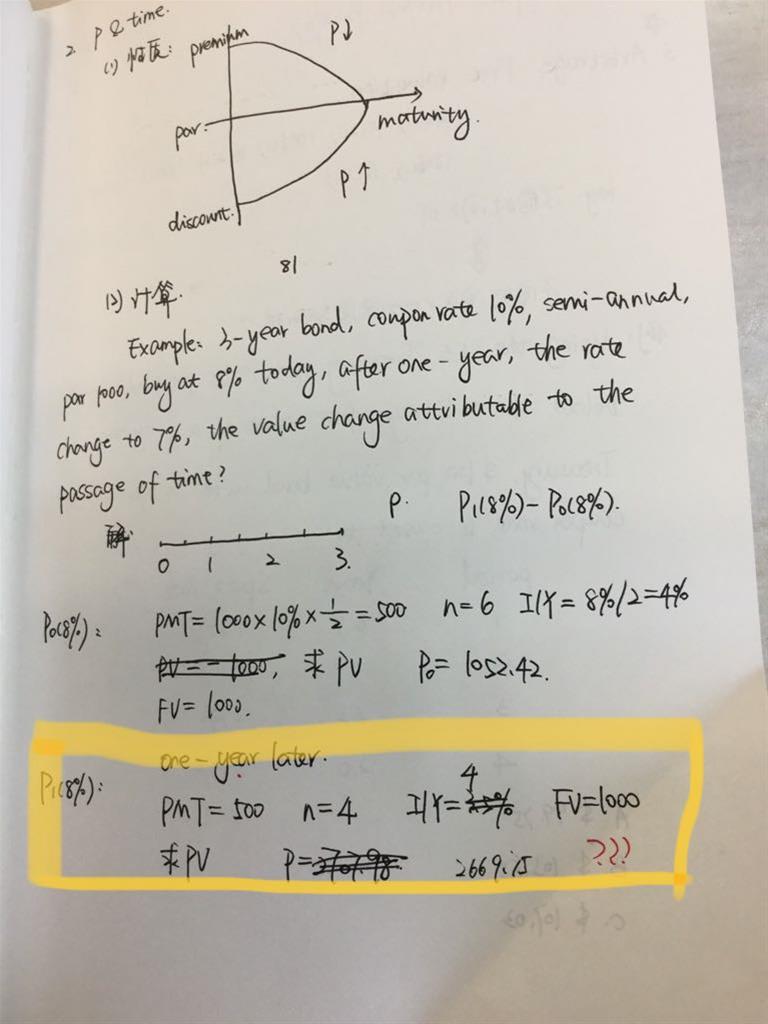 2. P & time.
(1) 性质:
premium
P↓
par.
maturity.
P↑
discount.
81
(2) 计算.
Example: 3-year bond, coupon rate 10%, semi-annual,
par 1000, buy at 8% today, after one-year, the rate
change to 7%, the value change attributable to the
passage of time?
P. P₁(8%)-P₀(8%).
解:
0 1 2 3.
P₀(8%): PMT=1000×10%×1/2=500 n=6 I/Y=8%/2=4%
PV=-1000, 求PV P₀=1052.42.
FV=1000.
one-year later.
P₁(8%): PMT=500 n=4 I/Y=4 FV=1000
求PV P= 2669.15 ???